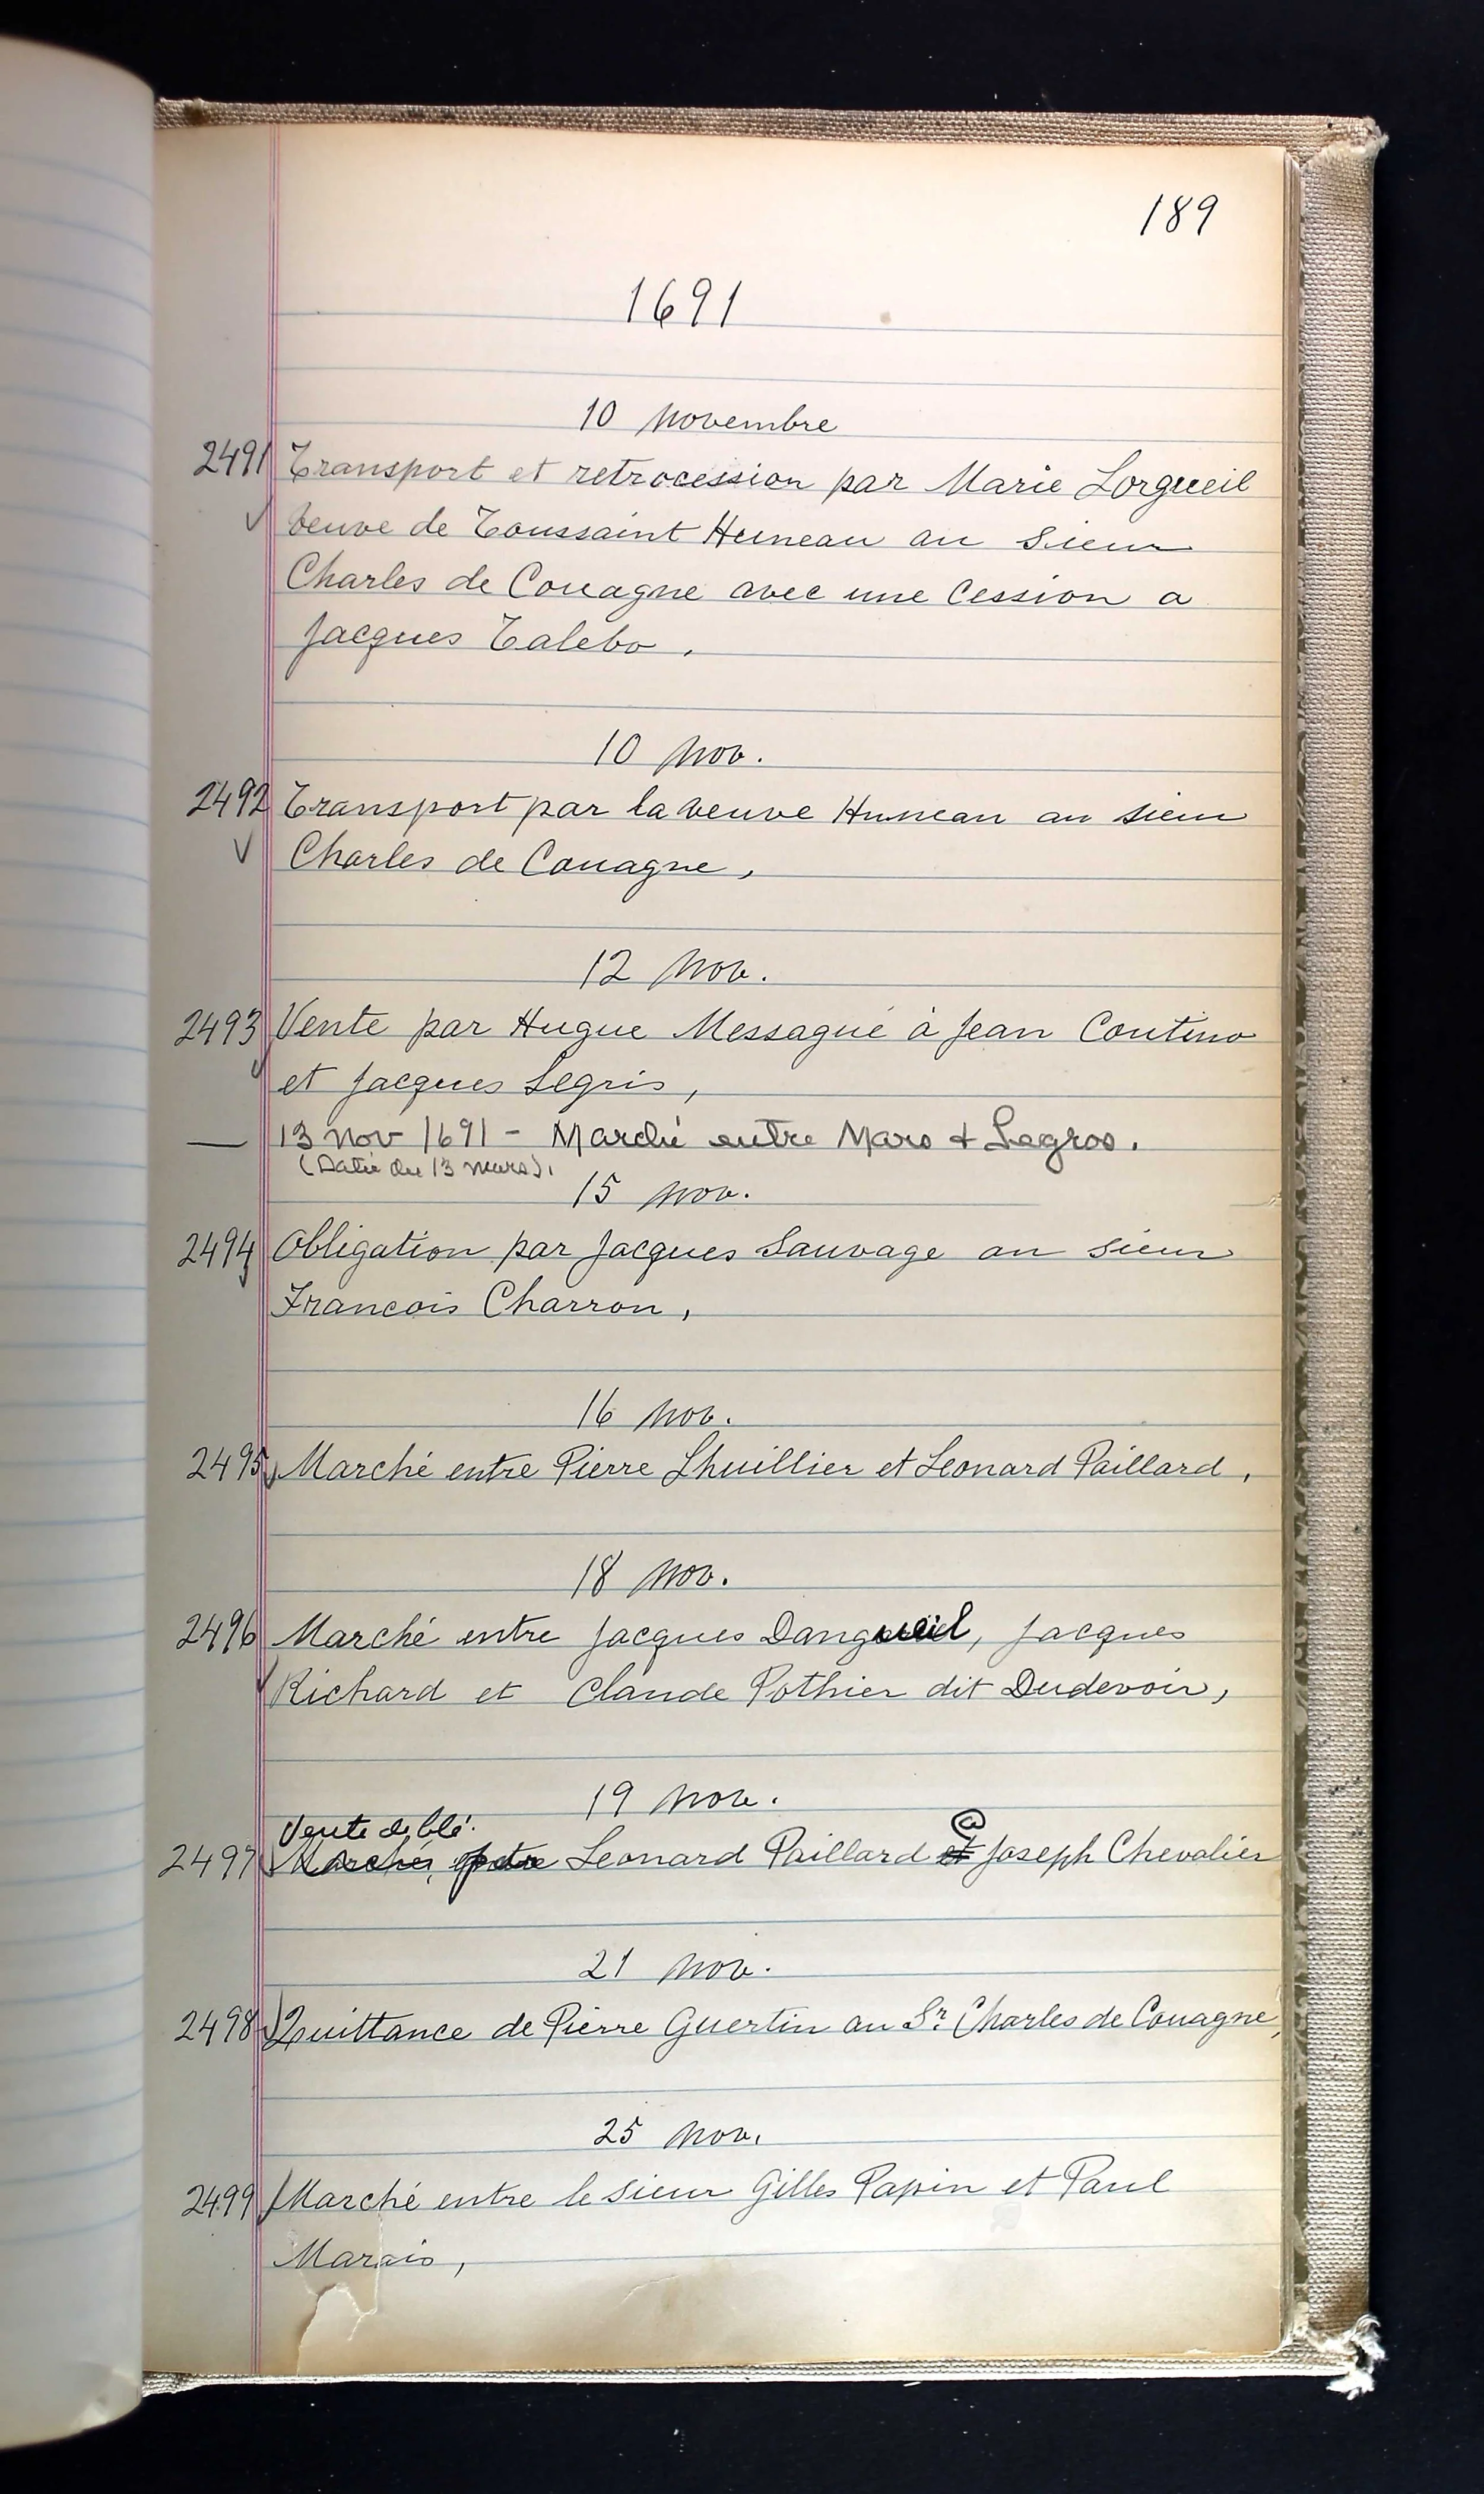 189
1691
10 Novembre
2491 Transport et retrocession par Marie Lorgueil
√ veuve de Toussaint Huneau au sieur
Charles de Couagne avec une cession a
Jacques Talebo,
10 Nov.
2492 Transport par la veuve Huneau au sieur
√ Charles de Couagne,
12 Nov.
2493 Vente par Hugue Messagué à Jean Coutino
√ et Jacques Legris,
— 13 Nov 1691 - Marché entre Mars + Legros.
(Datée du 13 mars).
15 Nov.
2494 Obligation par Jacques Sauvage au sieur
Francois Charron,
16 Nov.
2495 √ Marché entre Pierre Lhuillier et Leonard Paillard,
18 Nov.
2496 Marché entre Jacques Dangueuil, Jacques
√ Richard et Claude Pothier dit Dudevoir,
19 Nov.
Vente de blé. @
2497 Marché entre Leonard Paillard et Joseph Chevalier
21 Nov.
2498 Quittance de Pierre Guertin au Sr. Charles de Couagne,
25 Nov.
2499 Marché entre le sieur Gilles Papin et Paul
Marais,